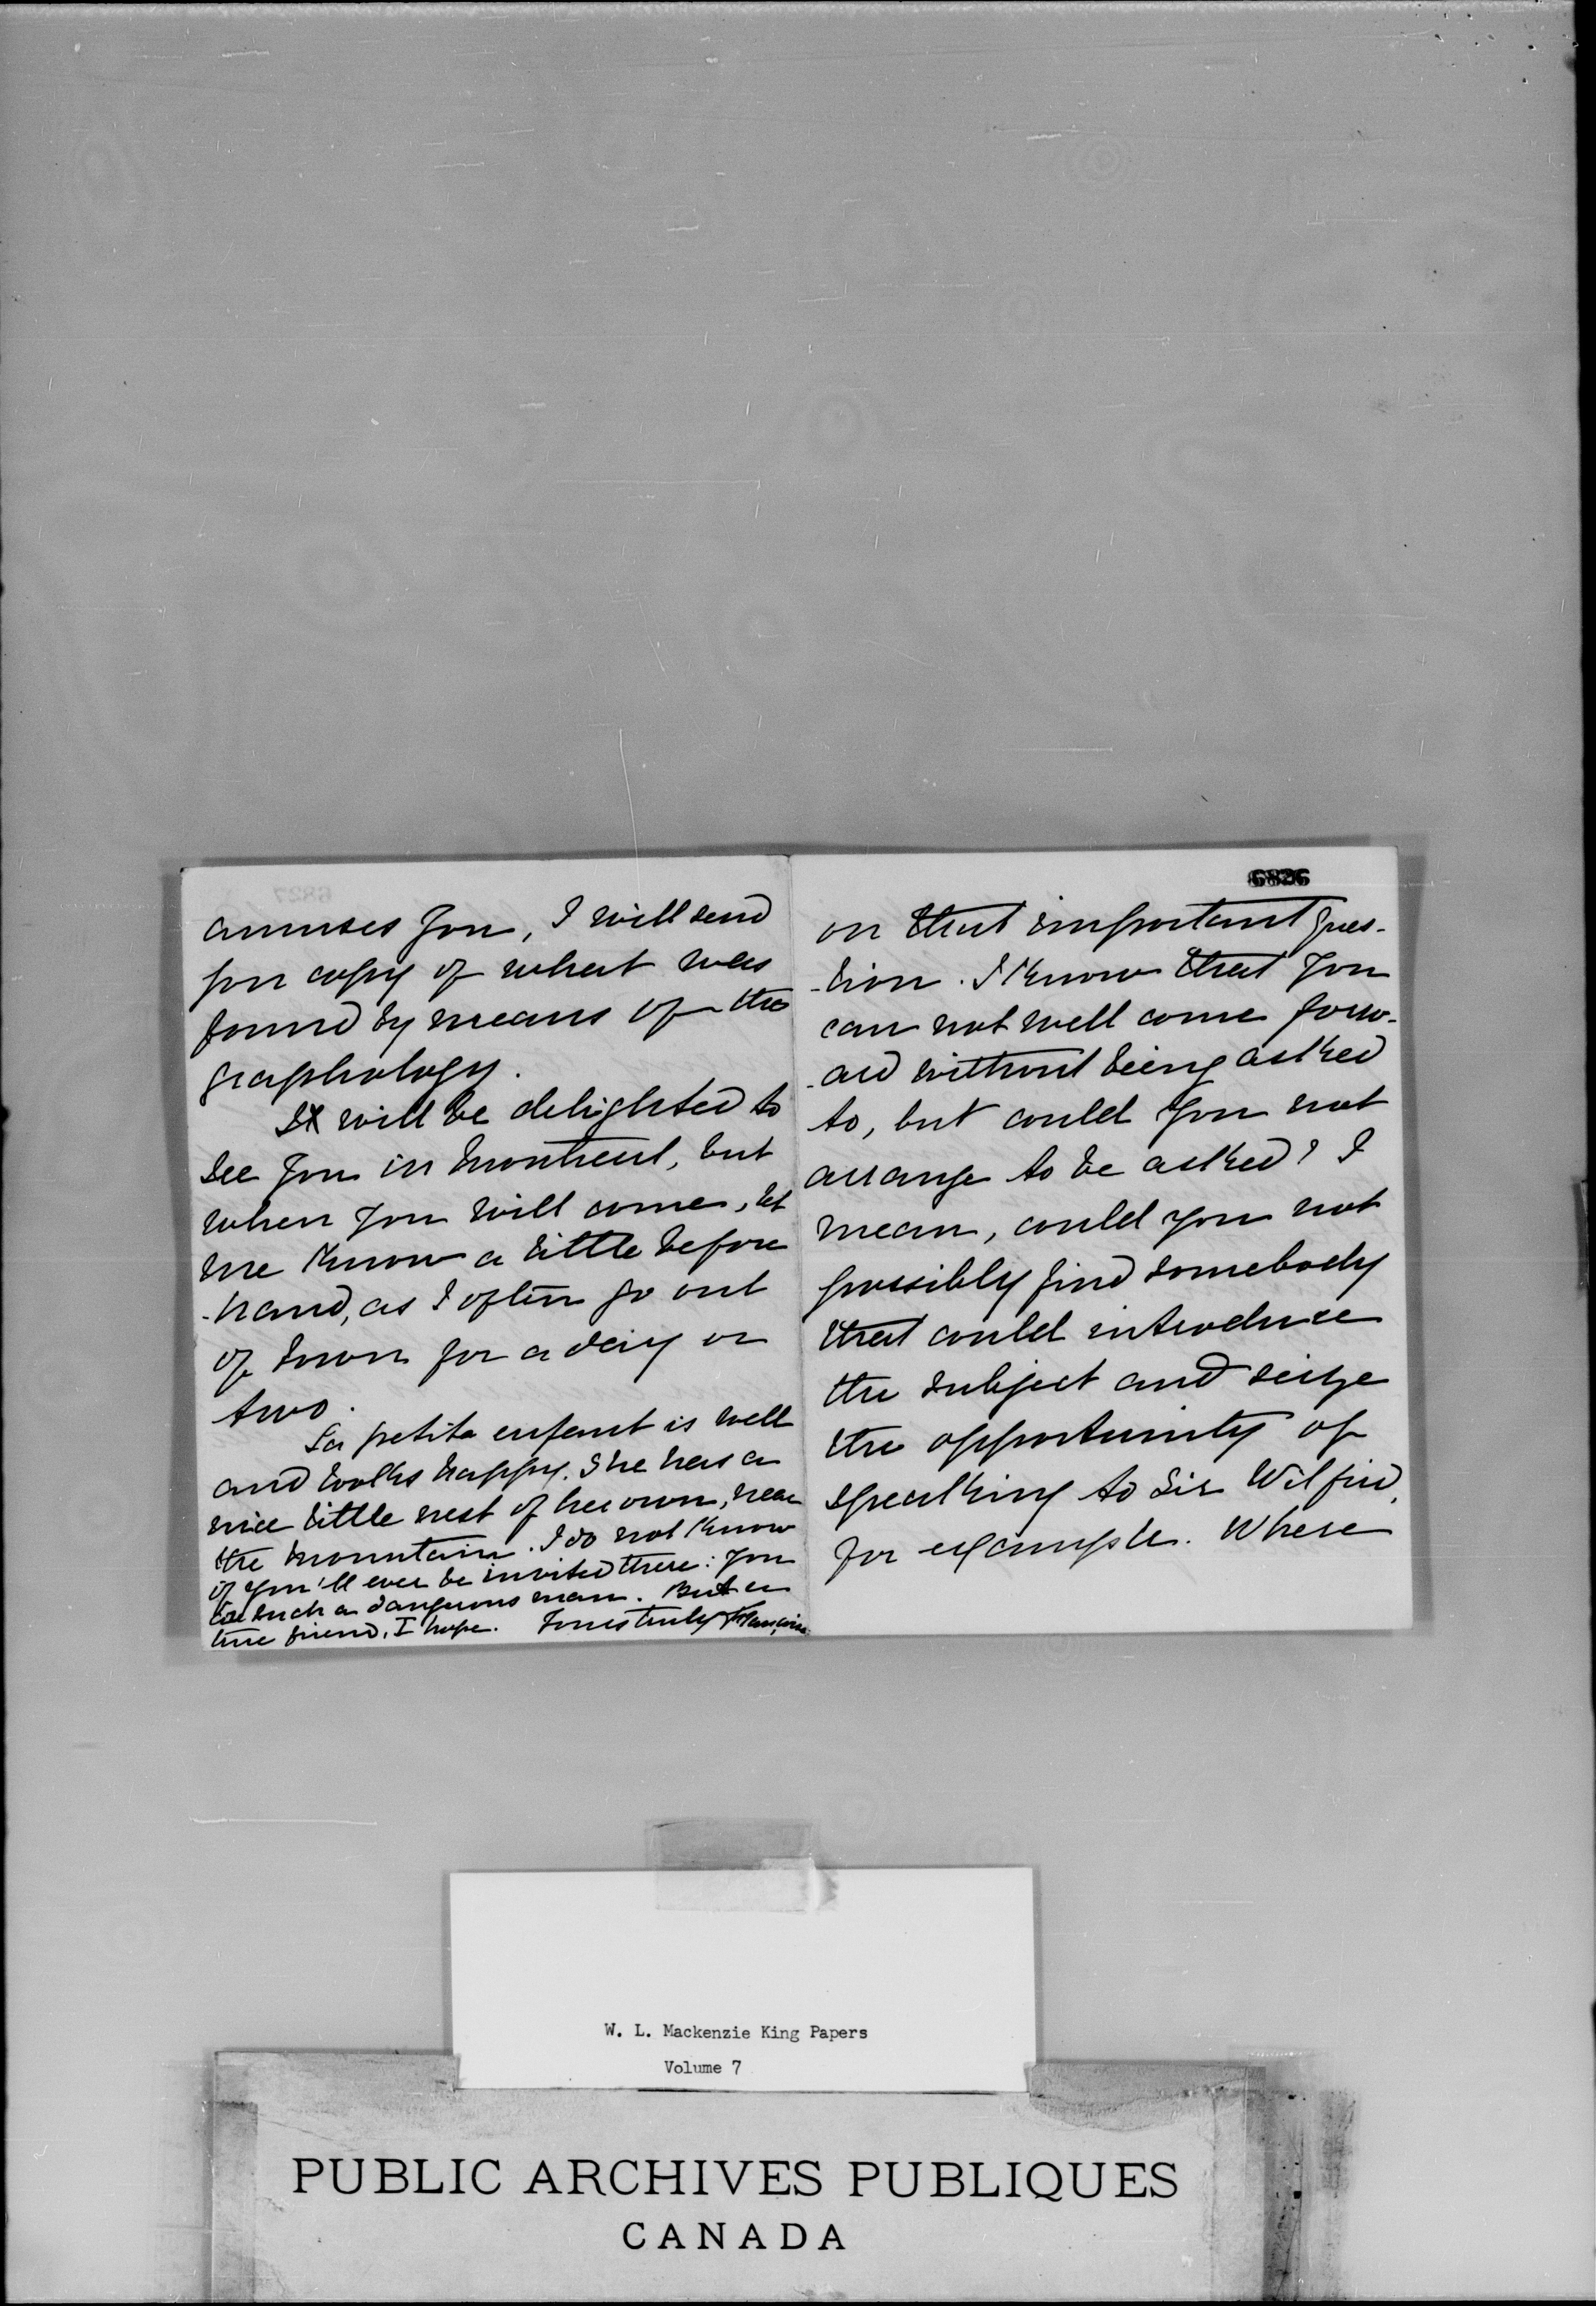 amuses you, I will send
you copy of what was
found by means of the
graphology.
I will be delighted to
see you in Montreal, but
when you will come, let
me know a little before
-hand, as I often go out
of town for a day or
two.
La petite enfant is well
and looks happy. She has a
nice little nest of her own, near
the mountain. I do not know
if you'll ever be invited there: you
are such a dangerous man. But a
true friend, I hope. Yours truly
6826
on that important ques-
-tion. I know that you
can not well come forw-
-ard without being asked
to, but could you not
arrange to be asked? I
mean, could you not
possibly find somebody
that could introduce
the subject and seize
the opportunity of
speaking to Sir Wilfrid,
for example. Where
W. L. Mackenzie King Papers
Volume 7
PUBLIC ARCHIVES PUBLIQUES
CANADA